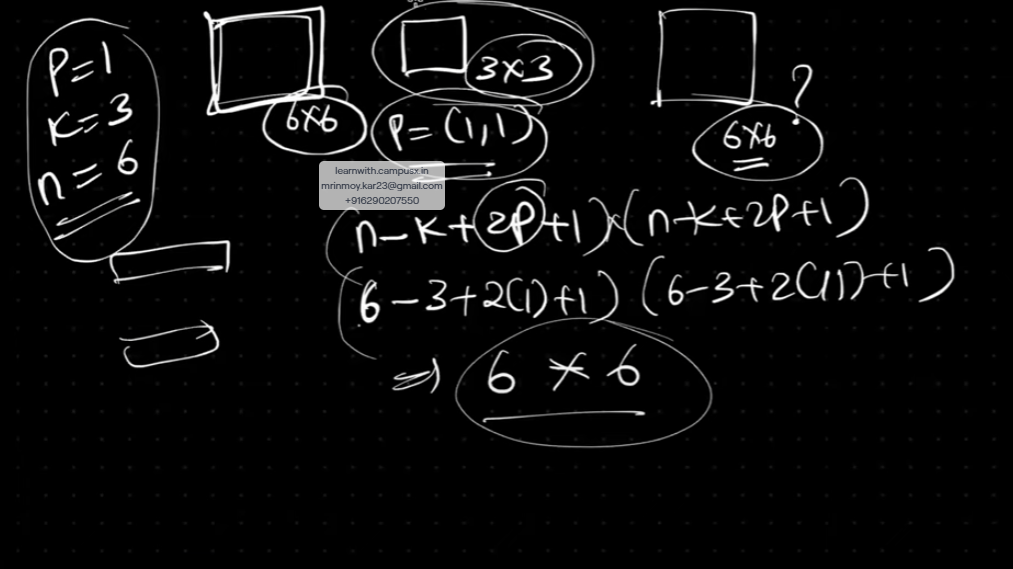 P=1
K=3
n=6
6×6
3×3
P=(1,1)
6×6
?
learnwith.campusx.in
mrinmoy.kar23@gmail.com
+916290207550
(n-K+2P+1)×(n-K+2P+1)
(6-3+2(1)+1) (6-3+2(1)+1)
⇒ 6 × 6